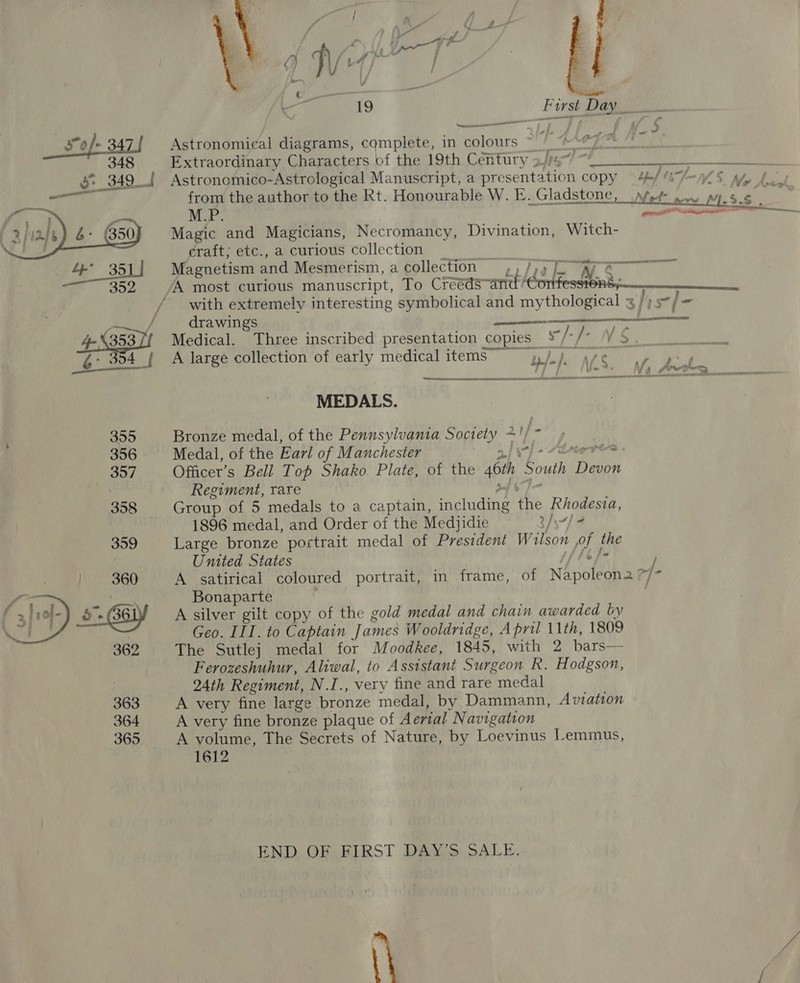 19 First Day
347 Astronomical diagrams, complete, in colours
348 Extraordinary Characters of the 19th Century
349 Astronomico-Astrological Manuscript, a presentation copy
from the author to the Rt. Honourable W. E. Gladstone,
M.P.
350 Magic and Magicians, Necromancy, Divination, Witch-
craft, etc., a curious collection
351 Magnetism and Mesmerism, a collection
352 A most curious manuscript, To Creeds and Confessions,
with extremely interesting symbolical and mythological
drawings
353 Medical. Three inscribed presentation copies
354 A large collection of early medical items
MEDALS.
355 Bronze medal, of the Pennsylvania Society
356 Medal, of the Earl of Manchester
357 Officer's Bell Top Shako Plate, of the 46th South Devon
Regiment, rare
358 Group of 5 medals to a captain, including the Rhodesia,
1896 medal, and Order of the Medjidie
359 Large bronze portrait medal of President Wilson of the
United States
360 A satirical coloured portrait, in frame, of Napoleon
Bonaparte
361 A silver gilt copy of the gold medal and chain awarded by
Geo. III. to Captain James Wooldridge, April 11th, 1809
362 The Sutlej medal for Moodkee, 1845, with 2 bars—
Ferozeshuhur, Aliwal, to Assistant Surgeon R. Hodgson,
24th Regiment, N.I., very fine and rare medal
363 A very fine large bronze medal, by Dammann, Aviation
364 A very fine bronze plaque of Aerial Navigation
365 A volume, The Secrets of Nature, by Loevinus Lemmus,
1612
END OF FIRST DAY'S SALE.